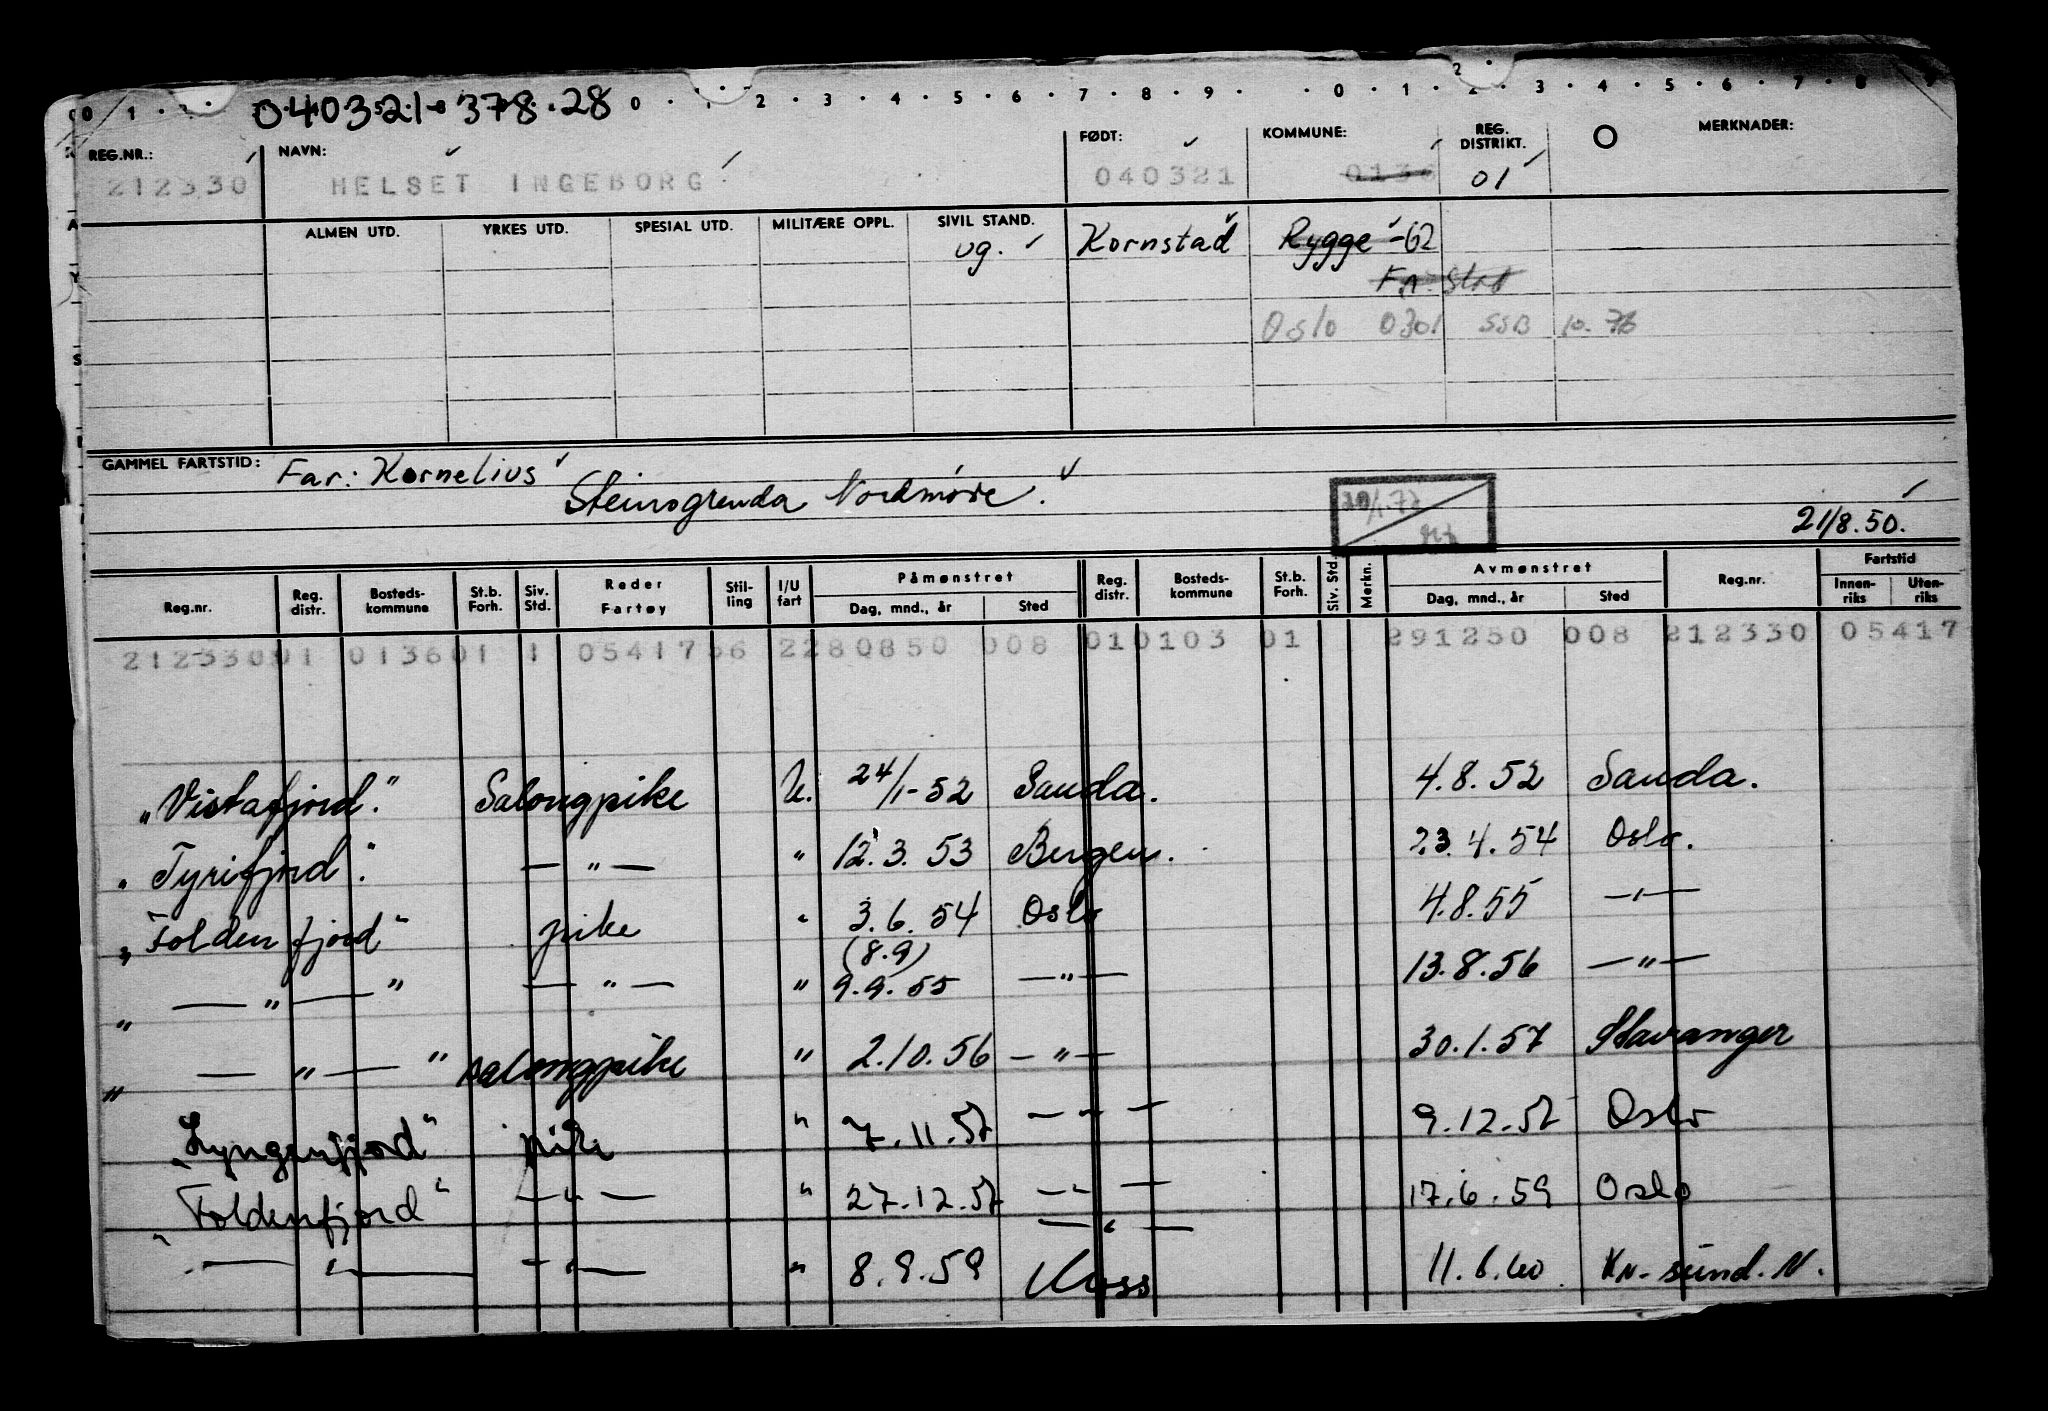 0 1 · 040321-378.28 0 · 1 2 · 3 · 4 · 5 · 6 · 7 · 8 · 9 · · 0 · 1 · 2 · 3 · 4 · 5 · 6 · 7 · 8 · 9
REG.NR.: NAVN: FØDT: KOMMUNE: REG. DISTRIKT. O MERKNADER:
212330 HELSET INGEBORG 040321 0136 01
ALMEN UTD. YRKES UTD. SPESIAL UTD. MILITÆRE OPPL. SIVIL STAND.
ug. Kornstad Rygge -62
Oslo 0301 SSB 10.76
GAMMEL FARTSTID: Far: Kornelius
Steinsgrenda Nordmøre.
21/8.50.
Reg.nr. Reg. distr. Bosteds-kommune St.b. Forh. Siv. Std. Reder Fartøy Stil-ling I/U fart Påmønstret Dag, mnd., år Sted Reg. distr. Bosteds-kommune St.b. Forh. Siv. Std. Merkn. Avmønstret Dag, mnd., år Sted Reg.nr. Fartstid Innen-riks Uten-riks
212330 01 0136 01 1 05417 56 2 280850 008 01 0103 01 291250 008 212330 05417
"Vistafjord." Salongpike U. 24/1-52 Sauda. 4.8.52 Sauda.
"Tyrifjord". — " — " 12.3.53 Bergen. 23.4.54 Oslo.
"Foldenfjord" pike " 3.6.54 Oslo 4.8.55 — " —
(8.9)
" — " — " — " — " 9.9.55 — " — 13.8.56 — " —
" — " — " salongpike " 2.10.56 — " — 30.1.57 Stavanger
"Lyngenfjord" pike " 7.11.57 — " — 9.12.57 Oslo
"Foldenfjord" — " — " 27.12.57 — " — 17.6.59 Oslo
— " —
— " — — " — " 8.9.59 Moss 11.6.60. Kr.sund. N.